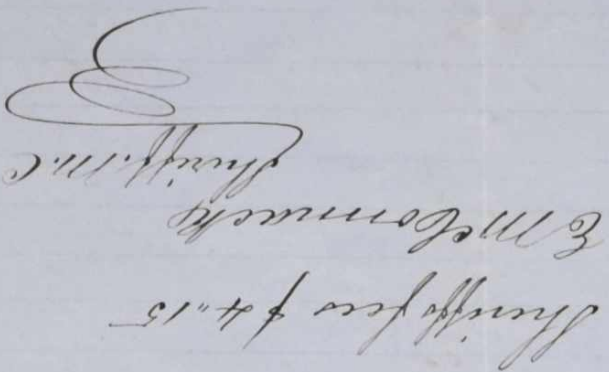 Sheriffs fees $4.15
E McCormack
Sheriff. M. C